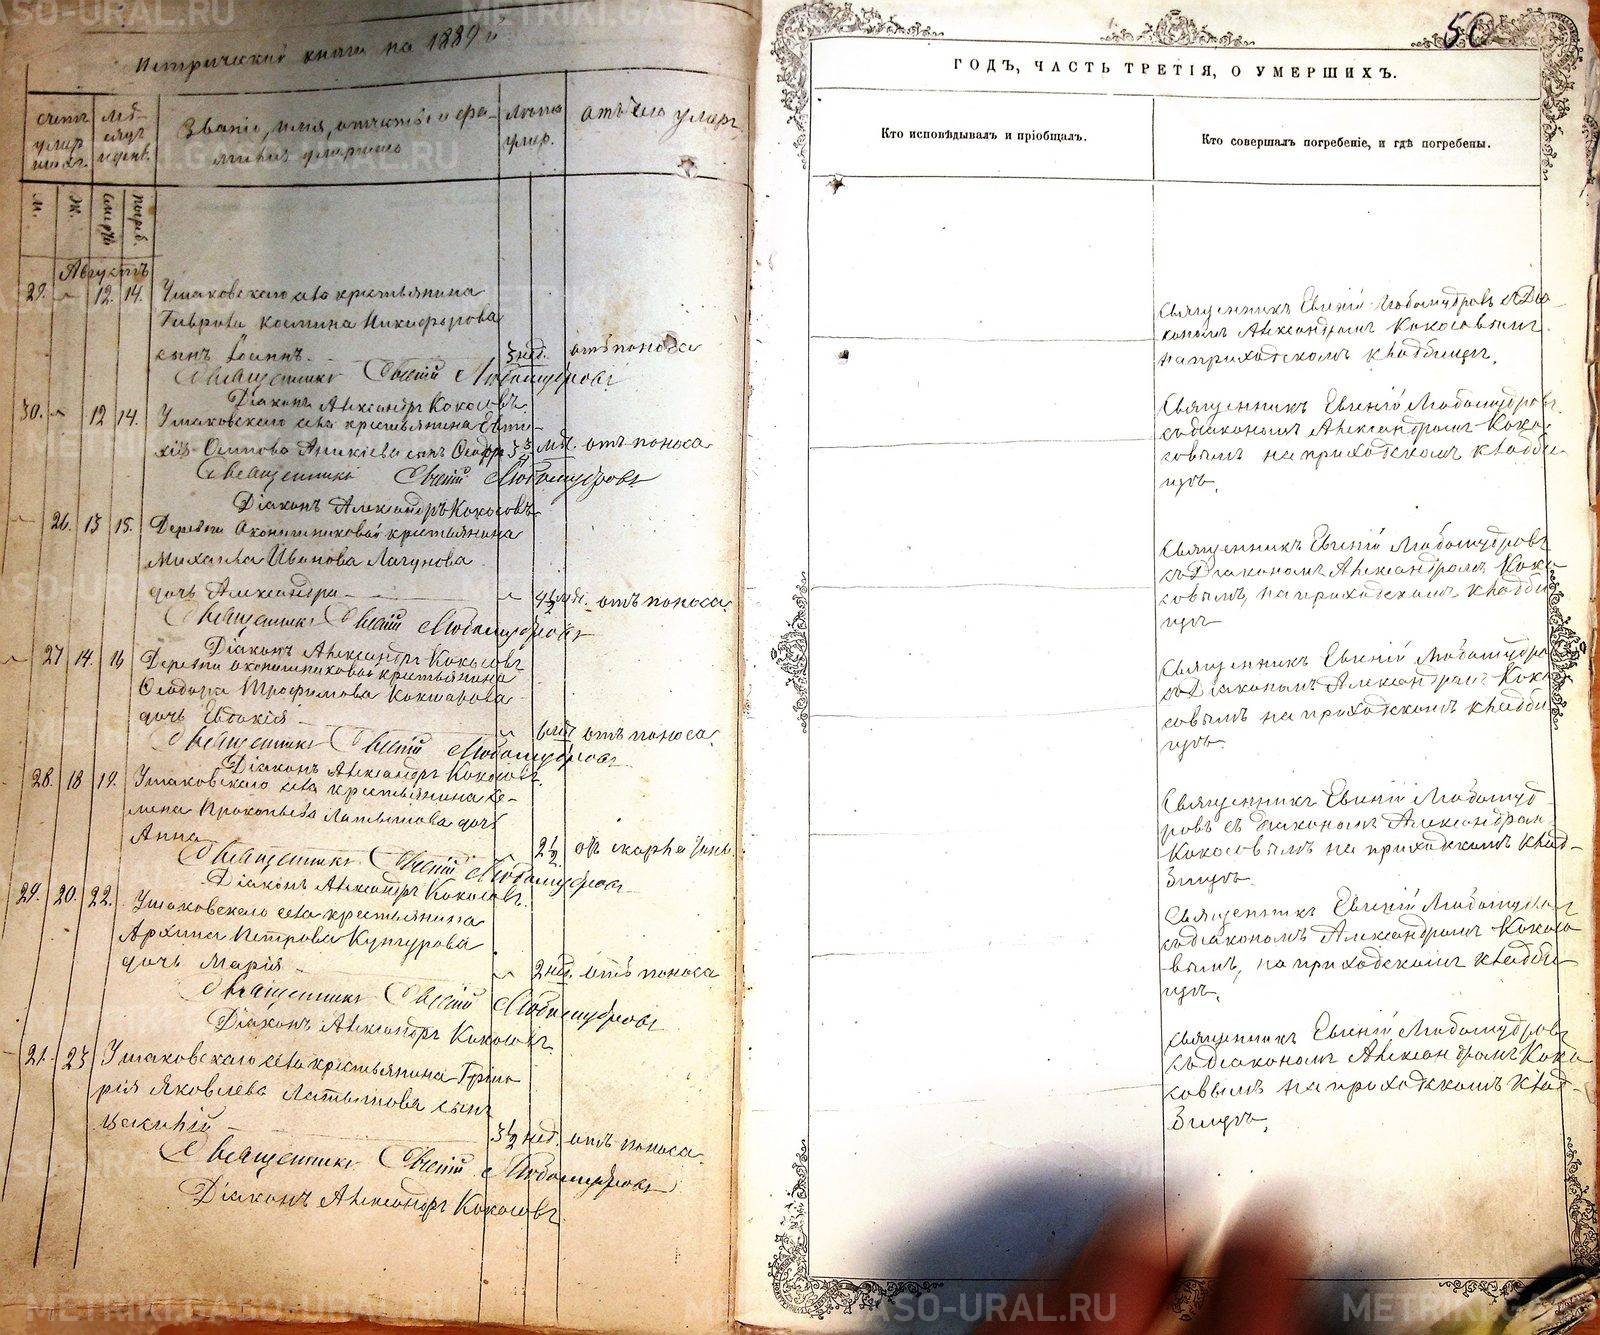 Метрической книги на 1889 й
счетъ умер ших.
мѣ- сяцъ и день.
Званіе, имя, отчество и фа-
милія умершаго
Лѣта умер.
отъ чего умеръ
м.
ж.
смерти
погреб.
Августъ
29. " 12. 14. Ушаковскаго села крестьянина
Гаврила Космина Никифорова
сынъ Іоаннъ. 3 нед. отъ поноса
Священникъ Евгеній Любомудровъ
Діаконъ Александръ Кокосовъ.
30. " 12 14. Ушаковскаго села крестьянина Евти-
хія Осипова Аникіева сынъ Ѳеодоръ 3 3/4 мѣс. отъ поноса
Священникъ Евгеній Любомудровъ
Діаконъ Александръ Кокосовъ
" 26. 13 15. Деревни Оконишниковой крестьянина
Михаила Иванова Лагунова
дочь Александра " 4 1/2 мѣс. отъ поноса.
Священникъ Евгеній Любомудровъ
Діаконъ Александръ Кокосовъ
" 27 14. 16 Деревни Оконишниковой крестьянина
Ѳеодора Трофимова Кокшарова
дочь Евдокія " 6 мѣс. отъ поноса.
Священникъ Евгеній Любомудровъ
Діаконъ Александръ Кокосовъ.
28. 18 19. Ушаковскаго села крестьянина Се-
мена Прокопьева Латышова дочь
Анна 2 1/2
Священникъ Евгеній Любомудровъ
Діаконъ Александръ Кокосовъ.
29. 20. 22. Ушаковскаго села крестьянина
Архипа Петрова Кунгурова
дочь Марія " 2 нед. отъ поноса
Священникъ Евгеній Любомудровъ
Діаконъ Александръ Кокосовъ.
21. 23 Ушаковскаго села крестьянина Григо
рія Яковлева Латышова сынъ
3 1/2 нед. отъ поноса.
Священникъ Евгеній Любомудровъ
Діаконъ Александръ Кокосовъ
50
ГОДЪ, ЧАСТЬ ТРЕТІЯ, О УМЕРШИХЪ.
Кто исповѣдывалъ и пріобщалъ.
Кто совершалъ погребеніе, и гдѣ погребены.
Священникъ Евгеній Любомудровъ съ Діа
кономъ Александромъ Кокосовымъ
на приходскомъ кладбищѣ.
Священникъ Евгеній Любомудровъ
съ діакономъ Александромъ Коко-
совымъ на приходскомъ кладби-
щѣ.
Священникъ Евгеній Любомудровъ
съ Діакономъ Александромъ Коко
совымъ, на приходскомъ кладби
щѣ
Священникъ Евгеній Любомудро
съ Діакономъ Александромъ Коко
совымъ на приходскомъ кладби
щѣ.
Священникъ Евгеній Любомуд-
ровъ съ діакономъ Александром
Кокосовымъ на приходскомъ клад-
бищѣ.
Священникъ Евгеній Любомудров
съ діакономъ Александромъ Кокосо
вымъ, на приходскомъ кладби
щѣ.
Священникъ Евгеній Любомудровъ
съ діакономъ Александромъ Коко
совымъ на приходскомъ клад-
бищѣ.
METRIKI.GASO-URAL.RU